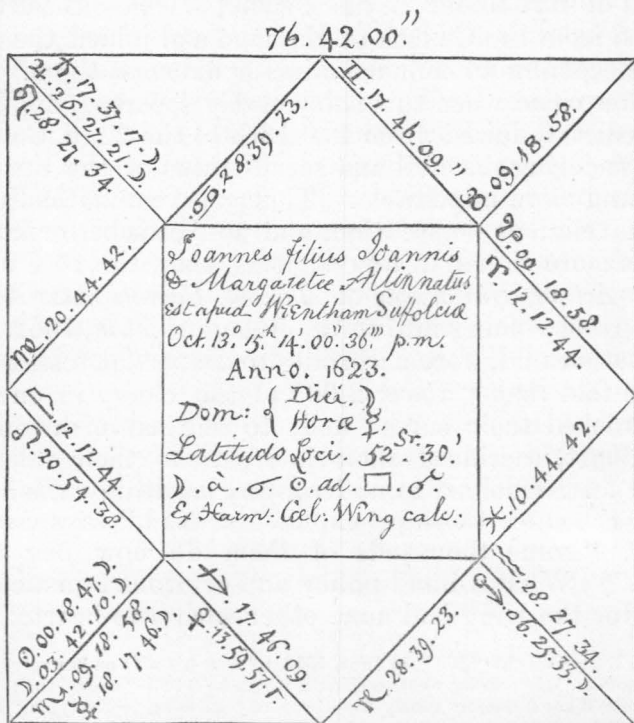 76.42.00"
♃ ♐.17.37.17.☽
♃.26.27.21.☽
♌.28.21.34.
♋.28.39.23.
♊.17.46.09."
♉.09.18.58.
♉ 00.18.58.
♈.12.12.44.
♍.20.44.42.
Ioannes filius Ioannis
& Margaretæ Allinnatus
Est apud Wrentham Suffolciæ
Oct. 13. 15. 14.00.36." p.m.
Anno. 1623.
Dom: { Diei
Horæ }
Latitudo Loci. 52 Gr. 30'
☽ à ☌ ☉ ad. □ ♂.
Ex Harm. Cœl. Wing calc.
♎.12.12.44.
♌.20.54.38.
♓.10.44.42.
☉.00.18.47.
☽.03.42.10.
♏.09.18.58.
♐.17.46.09.
♀.13.59.57.
♑.28.39.23.
♒.28.21.34.